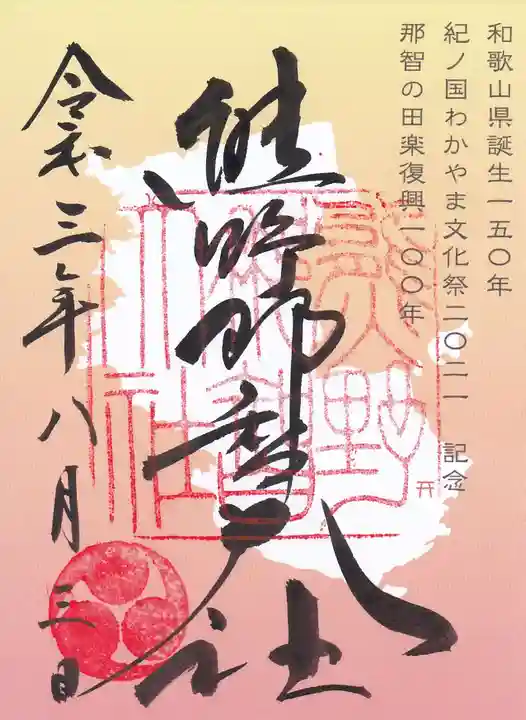 和歌山県誕生一五〇年
紀ノ国わかやま文化祭二〇二一 記念
那智の田楽復興一〇〇年
熊野那智大社
令和三年八月三日